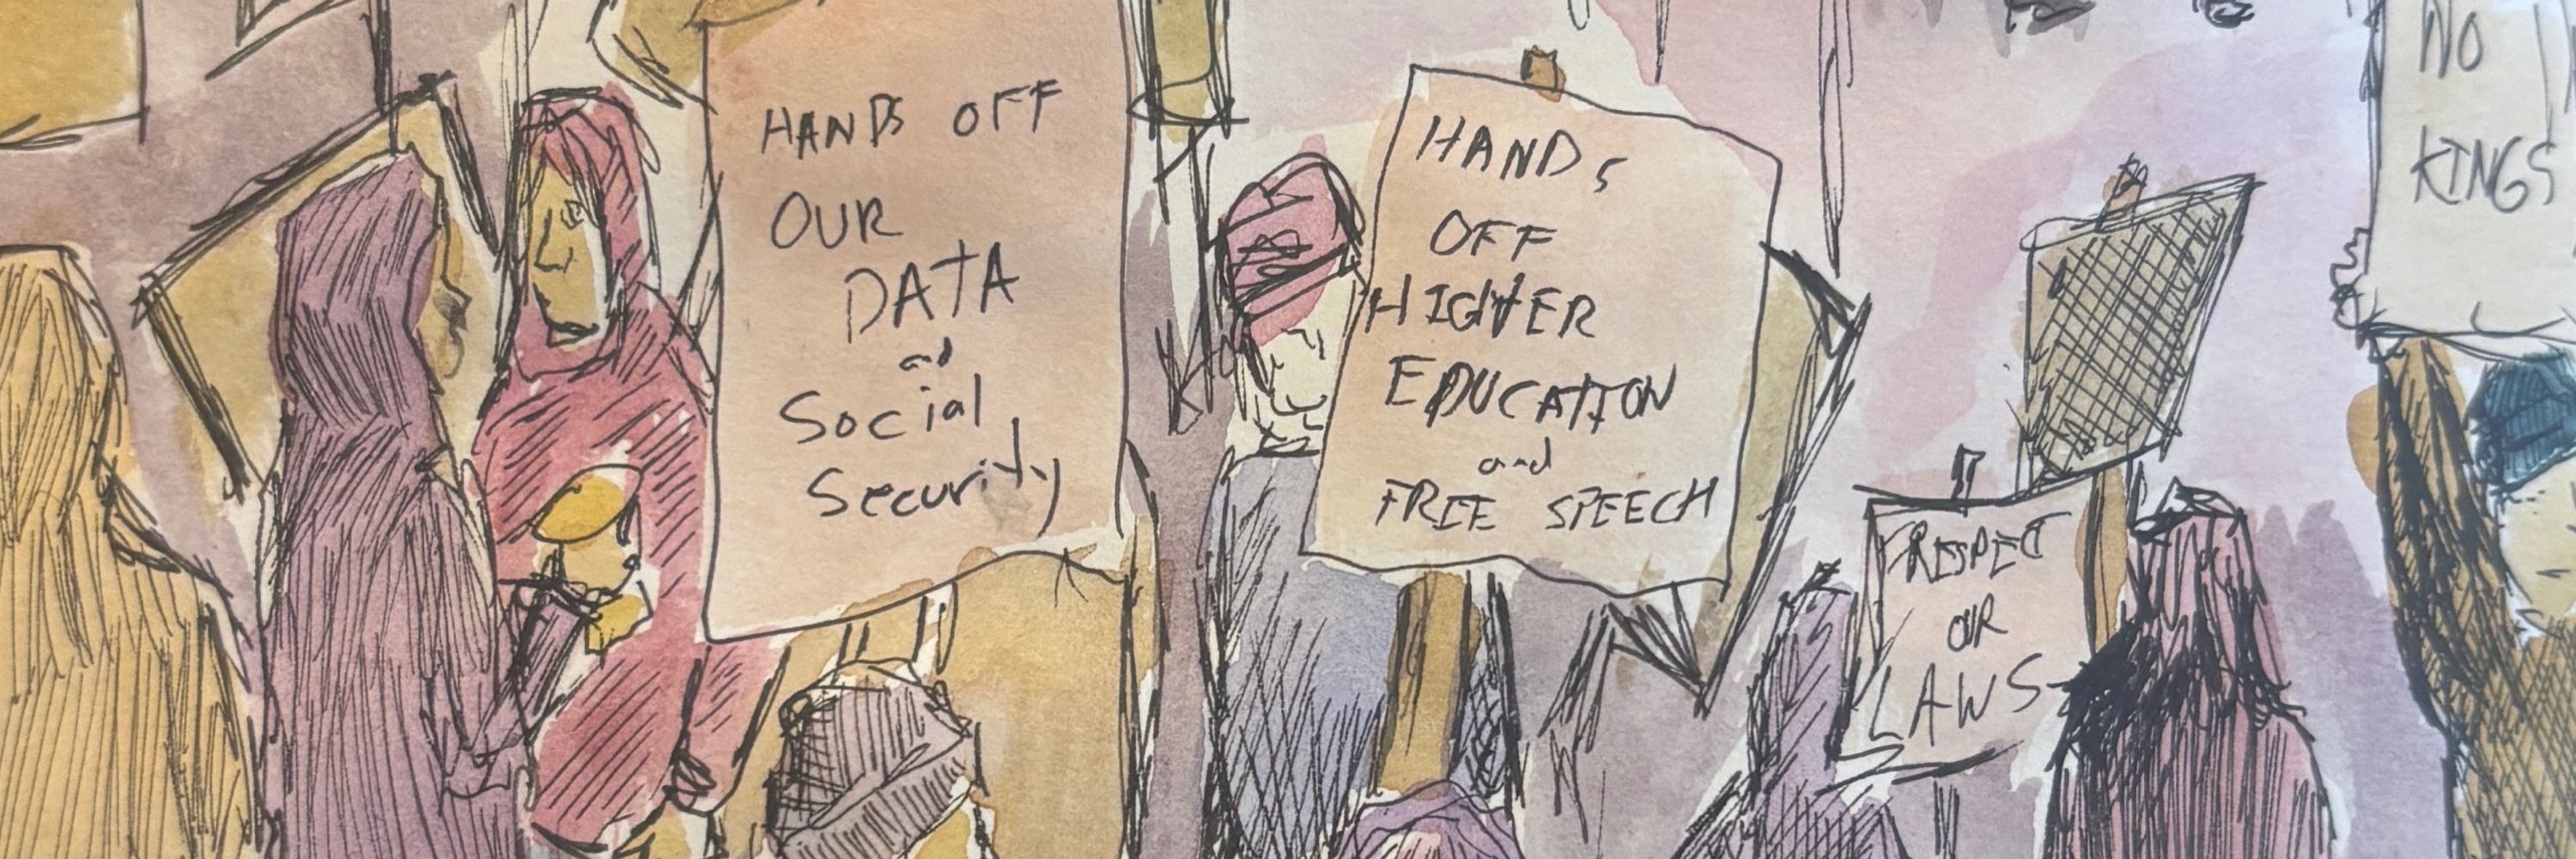 HANDS OFF
OUR
DATA
ad
Social
Security
HANDS
OFF
HIGHER
EDUCATION
and
FREE SPEECH
RESPECT
OUR
LAWS
NO
KINGS